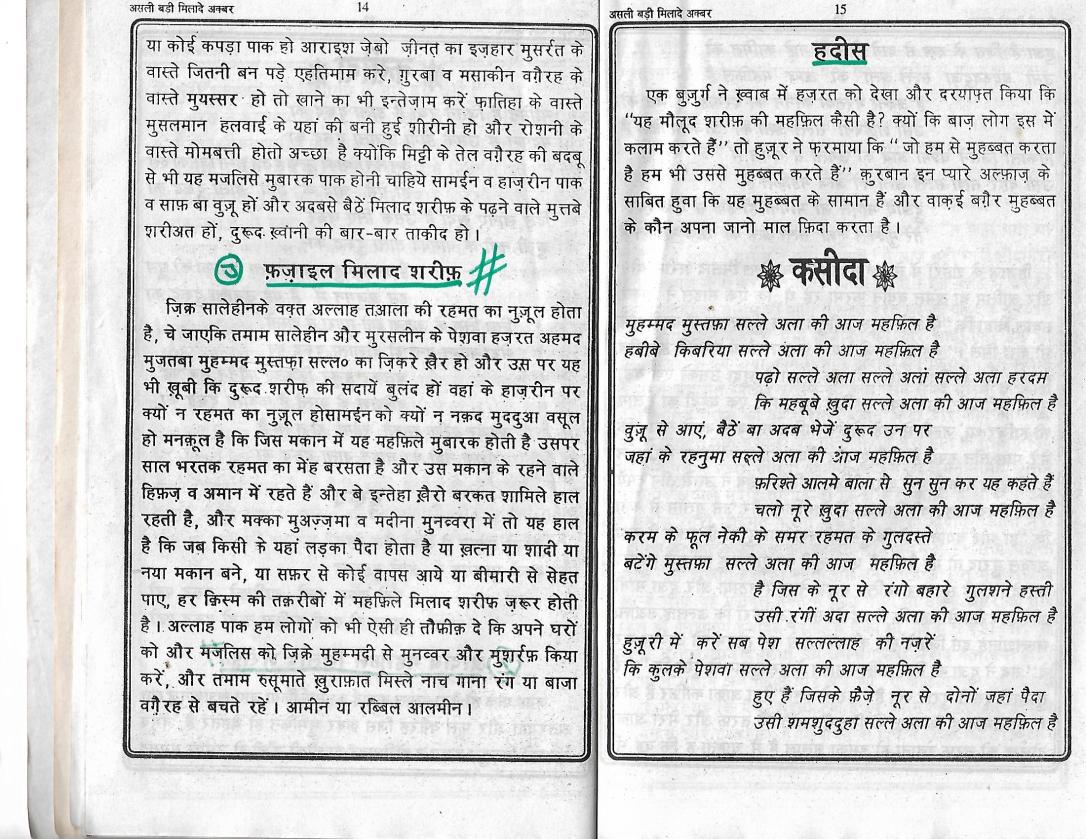 असली बड़ी मिलादे अक्बर 14
या कोई कपड़ा पाक हो आराइश ज़ेबो ज़ीनत का इज़हार मुसर्रत के
वास्ते जितनी बन पड़े एहतिमाम करे, ग़ुरबा व मसाकीन वग़ैरह के
वास्ते मुयस्सर हो तो खाने का भी इन्तेज़ाम करें फ़ातिहा के वास्ते
मुसलमान हलवाई के यहां की बनी हुई शीरीनी हो और रोशनी के
वास्ते मोमबत्ती होतो अच्छा है क्योंकि मिट्टी के तेल वग़ैरह की बदबू
से भी यह मजलिसे मुबारक पाक होनी चाहिये सामईन व हाज़रीन पाक
व साफ़ बा वुज़ू हों और अदबसे बैठें मिलाद शरीफ़ के पढ़ने वाले मुत्तबे
शरीअत हों, दुरूद ख़्वानी की बार-बार ताकीद हो।
फ़ज़ाइल मिलाद शरीफ़ #
ज़िक्र सालेहीनके वक़्त अल्लाह तआला की रहमत का नुज़ूल होता
है, चे जाएकि तमाम सालेहीन और मुरसलीन के पेशवा हज़रत अहमद
मुजतबा मुहम्मद मुस्तफ़ा सल्ल० का ज़िकरे ख़ैर हो और उस पर यह
भी ख़ूबी कि दुरूद शरीफ़ की सदायें बुलंद हों वहां के हाज़रीन पर
क्यों न रहमत का नुज़ूल होसामईन को क्यों न नक़द मुददुआ वसूल
हो मनक़ूल है कि जिस मकान में यह महफ़िले मुबारक होती है उसपर
साल भरतक रहमत का मेंह बरसता है और उस मकान के रहने वाले
हिफ़ज़ व अमान में रहते हैं और बे इन्तेहा ख़ैरो बरकत शामिले हाल
रहती है, और मक्का मुअज़्ज़मा व मदीना मुनव्वरा में तो यह हाल
है कि जब किसी के यहां लड़का पैदा होता है या ख़त्ना या शादी या
नया मकान बने, या सफ़र से कोई वापस आये या बीमारी से सेहत
पाए, हर क़िस्म की तक़रीबों में महफ़िले मिलाद शरीफ़ ज़रूर होती
है। अल्लाह पाक हम लोगों को भी ऐसी ही तौफ़ीक़ दे कि अपने घरों
को और मजलिस को ज़िक्रे मुहम्मदी से मुनव्वर और मुशर्रफ़ किया
करें, और तमाम रुसूमाते ख़ुराफ़ात मिस्ले नाच गाना रंग या बाजा
वग़ैरह से बचते रहें। आमीन या रब्बिल आलमीन।
असली बड़ी मिलादे अक्बर 15
हदीस
एक बुज़ुर्ग ने ख़्वाब में हज़रत को देखा और दरयाफ़्त किया कि
“यह मौलूद शरीफ़ की महफ़िल कैसी है? क्यों कि बाज़ लोग इस में
कलाम करते हैं’’ तो हुज़ूर ने फ़रमाया कि “ जो हम से मुहब्बत करता
है हम भी उससे मुहब्बत करते हैं’’ क़ुरबान इन प्यारे अल्फ़ाज़ के
साबित हुवा कि यह मुहब्बत के सामान हैं और वाक़ई बग़ैर मुहब्बत
के कौन अपना जानो माल फ़िदा करता है।
कसीदा
मुहम्मद मुस्तफ़ा सल्ले अला की आज महफ़िल है
हबीबे किबरिया सल्ले अला की आज महफ़िल है
पढ़ो सल्ले अला सल्ले अलां सल्ले अला हरदम
कि महबूबे ख़ुदा सल्ले अला की आज महफ़िल है
वुज़ू से आएं, बैठें बा अदब भेजें दुरूद उन पर
जहां के रहनुमा सल्ले अला की आज महफ़िल है
फ़रिश्ते आलमे बाला से सुन सुन कर यह कहते हैं
चलो नूरे ख़ुदा सल्ले अला की आज महफ़िल है
करम के फूल नेकी के समर रहमत के गुलदस्ते
बटेंगे मुस्तफ़ा सल्ले अला की आज महफ़िल है
है जिस के नूर से रंगो बहारे गुलशने हस्ती
उसी रंगीं अदा सल्ले अला की आज महफ़िल है
हुज़ूरी में करें सब पेश सल्लल्लाह की नज़रें
कि कुलके पेशवा सल्ले अला की आज महफ़िल है
हुए हैं जिसके फ़ैज़े नूर से दोनों जहां पैदा
उसी शमशुददुहा सल्ले अला की आज महफ़िल है